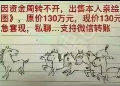 因资金周转不开，出售本人亲绘
图》，原价130万元，现价130元
急套现，私聊…支持微信转账